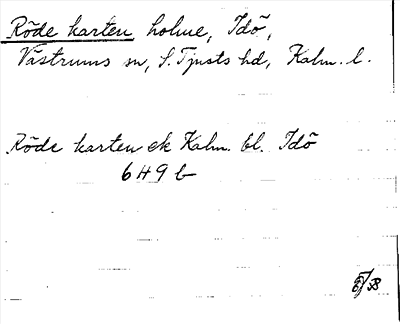 Röde karten holme, Idö,
Västrums sn, S. Tjusts hd, Kalm. l.
Röde karten ek Kalm. bl. Idö
6 H 9 b